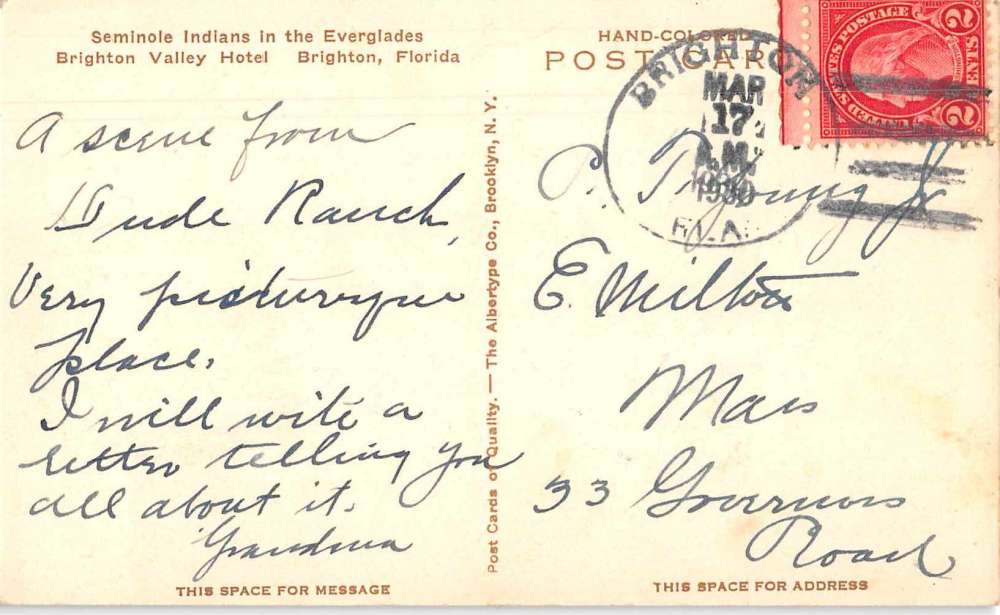 Seminole Indians in the Everglades
Brighton Valley Hotel Brighton, Florida
A scene from
Dude Ranch,
Very picturesque
place.
I will write a
letter telling you
all about it.
Grandma
THIS SPACE FOR MESSAGE
Post Cards of Quality. — The Albertype Co., Brooklyn, N. Y.
HAND-COLORED
POST CARD
BRIGHTON
MAR
17
A.M.
1930
FLA.
UNITED STATES POSTAGE
2 2
P. T. Young Jr
E. Milton
Mass
33 Governors
Road
THIS SPACE FOR ADDRESS